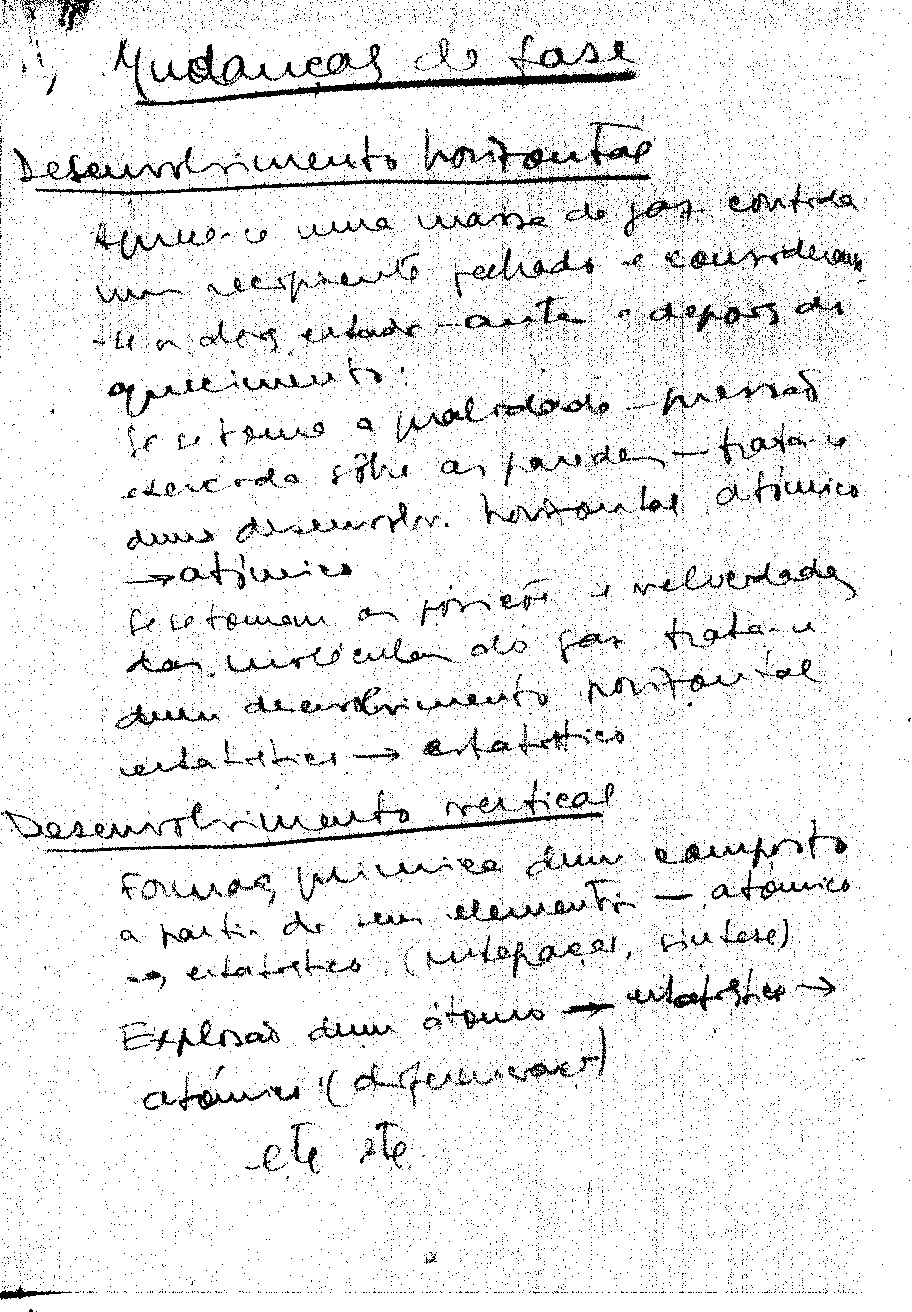 Mudanças de fase
Desenvolvimento horizontal
Aquece-se uma massa de gaz contida
num recipiente fechado e consideram
-se os dois estados - antes e depois do
aquecimento.
Se se toma a qualidade - pressão
exercida sôbre as paredes - trata-se
dum desenvolv. horizontal atómico
→ atómico
Se se tomam as posições e velocidades
das moléculas do gaz trata-se
dum desenvolvimento horizontal
estatístico → estatístico
Desenvolvimento vertical
Formaç química dum composto
a partir de seus elementos - atómico
→ estatístico (integraçao, sintese)
Explosão dum átomo → estatístico →
atómico (diferenciaçao)
etc etc